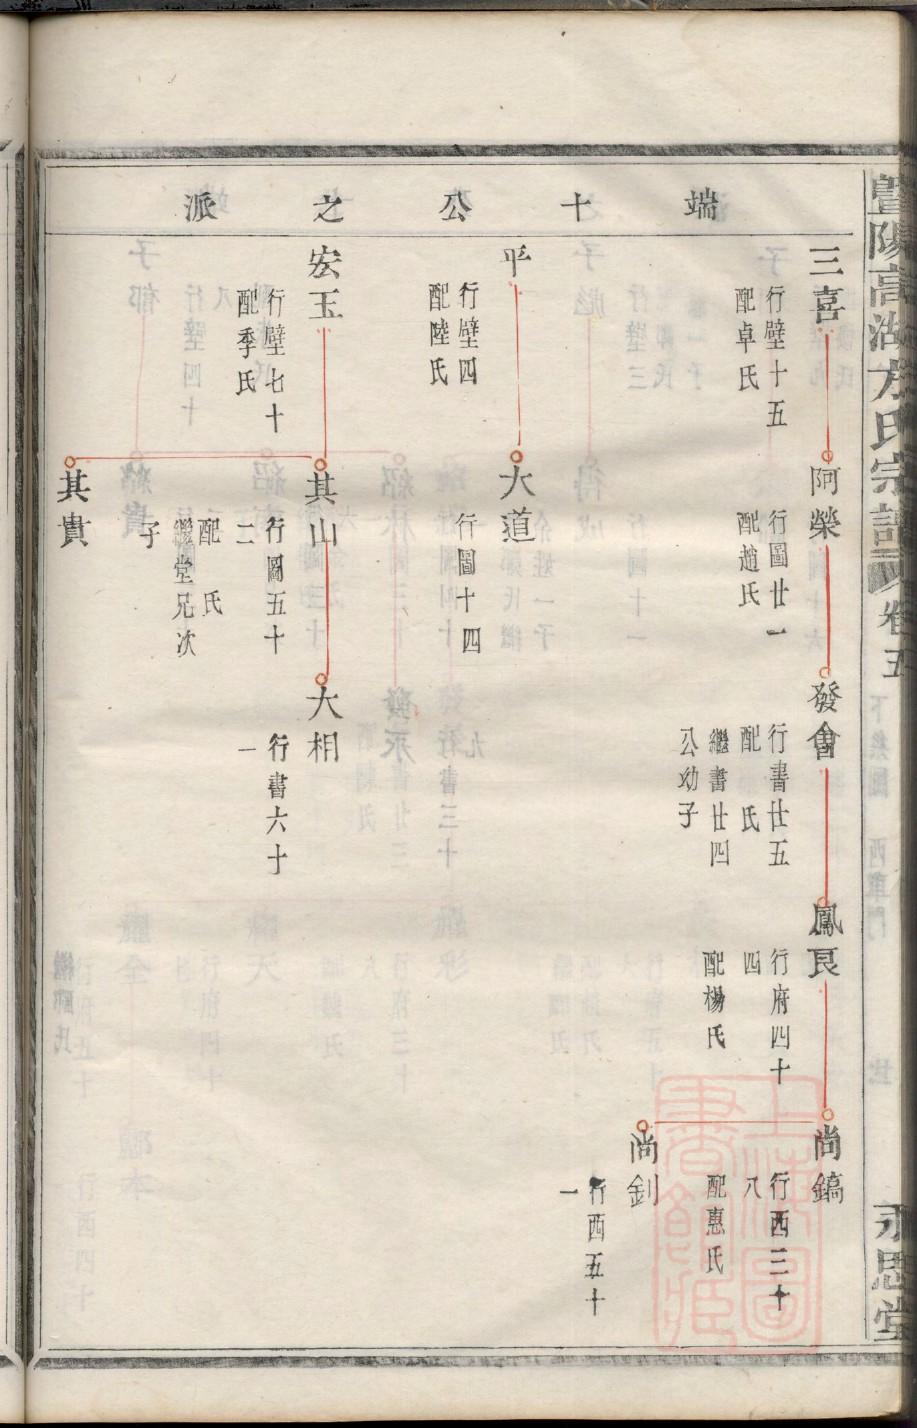 暨陽高湖方氏宗譜
卷五
永思堂
端十公之派
三喜
行壁十五
配卓氏
阿榮
行圖廿一
配趙氏
發會
行書廿五
配　氏
繼書廿四
公幼子
鳳良
行府四十
四
配楊氏
尚鎬
行西三十
八
配惠氏
尚釗
行西五十
一
平
行壁四
配陸氏
大道
行圖十四
宏玉
行壁七十
配季氏
其山
行圖五十
二
配　氏
繼堂兄次
子
大相
行書六十
一
其貴